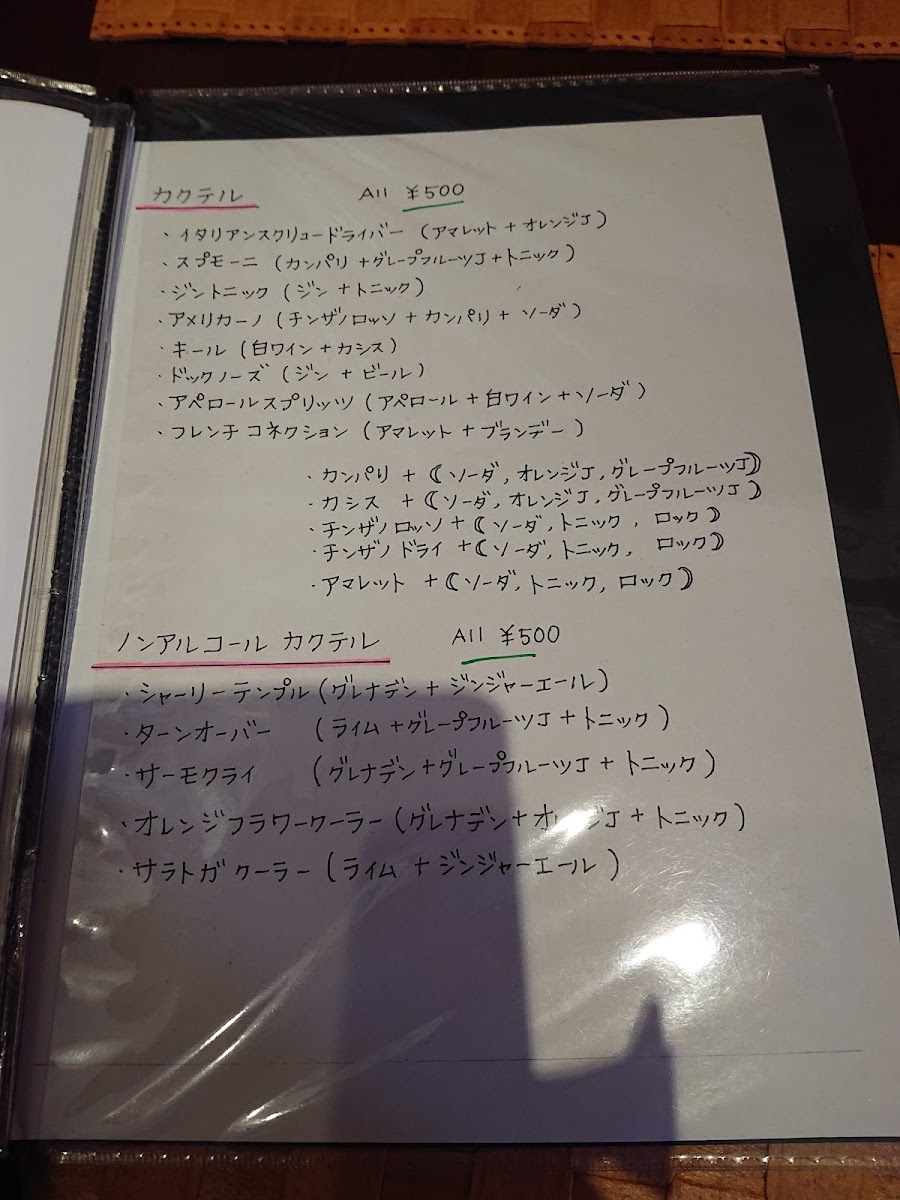 カクテル All ¥500
・イタリアンスクリュードライバー (アマレット + オレンジJ)
・スプモーニ (カンパリ + グレープフルーツJ + トニック)
・ジントニック (ジン + トニック)
・アメリカーノ (チンザノロッソ + カンパリ + ソーダ)
・キール (白ワイン + カシス)
・ドックノーズ (ジン + ビール)
・アペロールスプリッツ (アペロール + 白ワイン + ソーダ)
・フレンチコネクション (アマレット + ブランデー)
・カンパリ + (ソーダ, オレンジJ, グレープフルーツJ)
・カシス + (ソーダ, オレンジJ, グレープフルーツJ)
・チンザノロッソ + (ソーダ, トニック, ロック)
・チンザノドライ + (ソーダ, トニック, ロック)
・アマレット + (ソーダ, トニック, ロック)
ノンアルコールカクテル All ¥500
・シャーリーテンプル (グレナデン + ジンジャーエール)
・ターンオーバー (ライム + グレープフルーツJ + トニック)
・サーモクライ (グレナデン + グレープフルーツJ + トニック)
・オレンジフラワークーラー (グレナデン + オレンジJ + トニック)
・サラトガクーラー (ライム + ジンジャーエール)